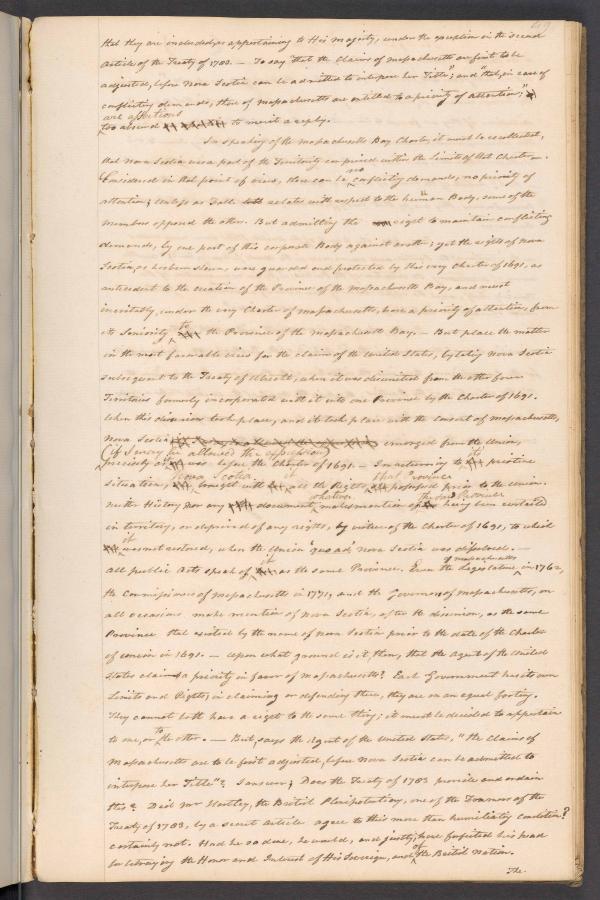 that they are included, as appertaining to His Majesty, under the exception in the second
Article of the Treaty of 1783. — To say "that the Claims of Massachusetts are first to be
adjusted, before Nova Scotia can be admitted to interpose her Title"; and "that, in case of
conflicting demands, those of Massachusetts are entitled to a priority of attention;"
are assertions
too absurd to merit a reply.
In speaking of the Massachusetts Bay Charter, it must be recollected,
that Nova Scotia was a part of the Territory comprised within the Limits of that Charter —.
Considered in that point of view, there can be no conflicting demands, no priority of
attention; unless as Dalle relates with respect to the human Body, some of the
members oppose the other. But admitting the right to maintain conflicting
demands, by one part of this corporate Body against another; yet the rights of Nova
Scotia, as has been shewn, were guarded and protected by this very Charter of 1691, as
antecedent to the creation of the Province of the Massachusetts Bay, and must
inevitably, under the very Charter of Massachusetts, have a priority of attention, from
its Seniority to the Province of the Massachusetts Bay. — But place the matter
in the most favorable view for the claim of the United States, by taking Nova Scotia
subsequent to the Treaty of Utrecht, when it was disunited from the other four
Territories formerly incorporated with it into one Province by the Charter of 1691.
When this disunion took place, and it took place with the consent of Massachusetts,
Nova Scotia emerged from the Union,
(if I may be allowed the expression)
precisely as it was, before the Charter of 1691 — In returning to its pristine
Nova Scotia it that Province
situation, brought with all the Rights possessed prior to the Union.
whatever the said Province
Neither History nor any document, makes mention of having been curtailed
in territory, or deprived of any rights, by virtue of the Charter of 1691, to which
it
was not restored, when the Union "quo ad" Nova Scotia was dissolved. —
it of Massachusetts
All public Acts speak of as the same Province. Even the Legislature in 1762,
the Commissioners of Massachusetts in 1771, and the Governors of Massachusetts, on
all occasions make mention of Nova Scotia, after the disunion, as the same
Province that existed by the name of Nova Scotia prior to the date of the Charter
of union in 1691. — Upon what ground is it, then, that the Agent of the United
States claims a priority in favor of Massachusetts? Each Government has its own
Limits and Rights; in claiming or defending these, they are on an equal footing.
They cannot both have a right to the same thing; it must be decided to appertain
to one, or to the other. — But, says the Agent of the United States, "the Claims of
Massachusetts are to be first adjusted, before Nova Scotia can be admitted to
interpose her Title"? I answer; Does the Treaty of 1783 provide and ordain
this? Did Mr Hartley, the British Plenipotentiary, one of the Framers of the
Treaty of 1783, by a secret Article agree to this more than humiliating condition?
certainly not. Had he so done, he would, and justly, have forfeited his head
for betraying the Honor and Interest of His Sovereign, and of the British Nation.
The